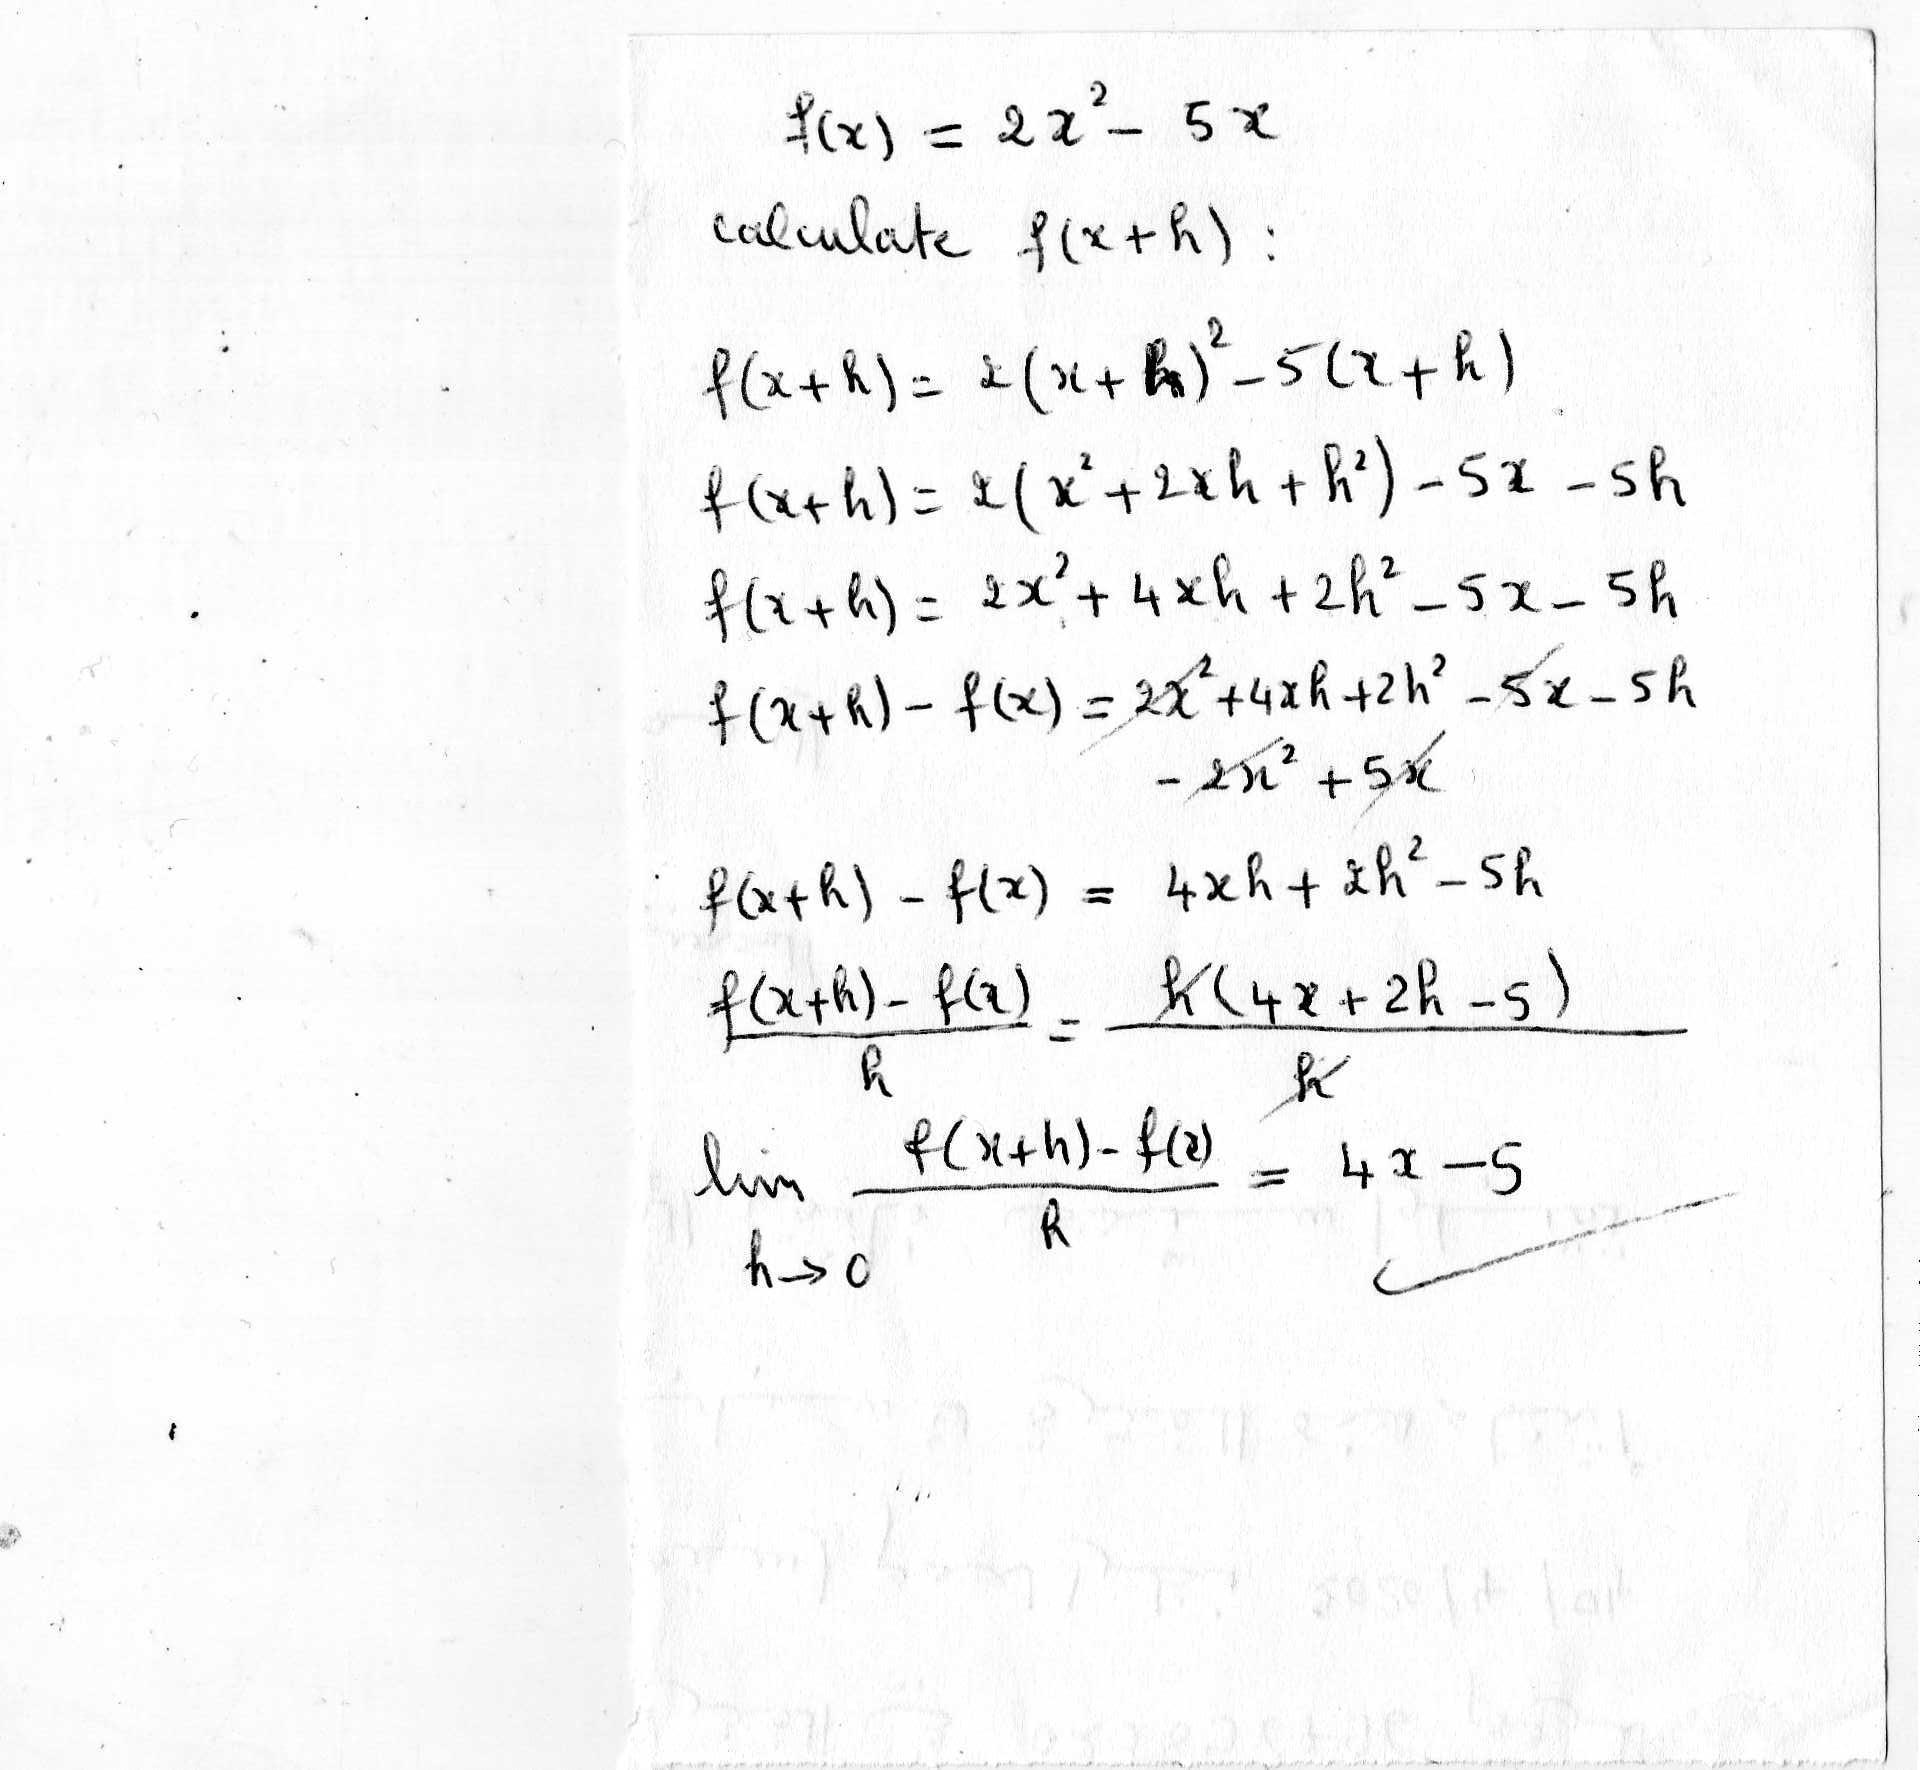 f(x) = 2x² - 5x
calculate f(x+h) :
f(x+h) = 2(x+h)² - 5(x+h)
f(x+h) = 2(x² + 2xh + h²) - 5x - 5h
f(x+h) = 2x² + 4xh + 2h² - 5x - 5h
f(x+h) - f(x) = 2x² + 4xh + 2h² - 5x - 5h
- 2x² + 5x
f(x+h) - f(x) = 4xh + 2h² - 5h
f(x+h) - f(x) / h = h(4x + 2h - 5) / h
lim h→0 f(x+h) - f(x) / h = 4x - 5